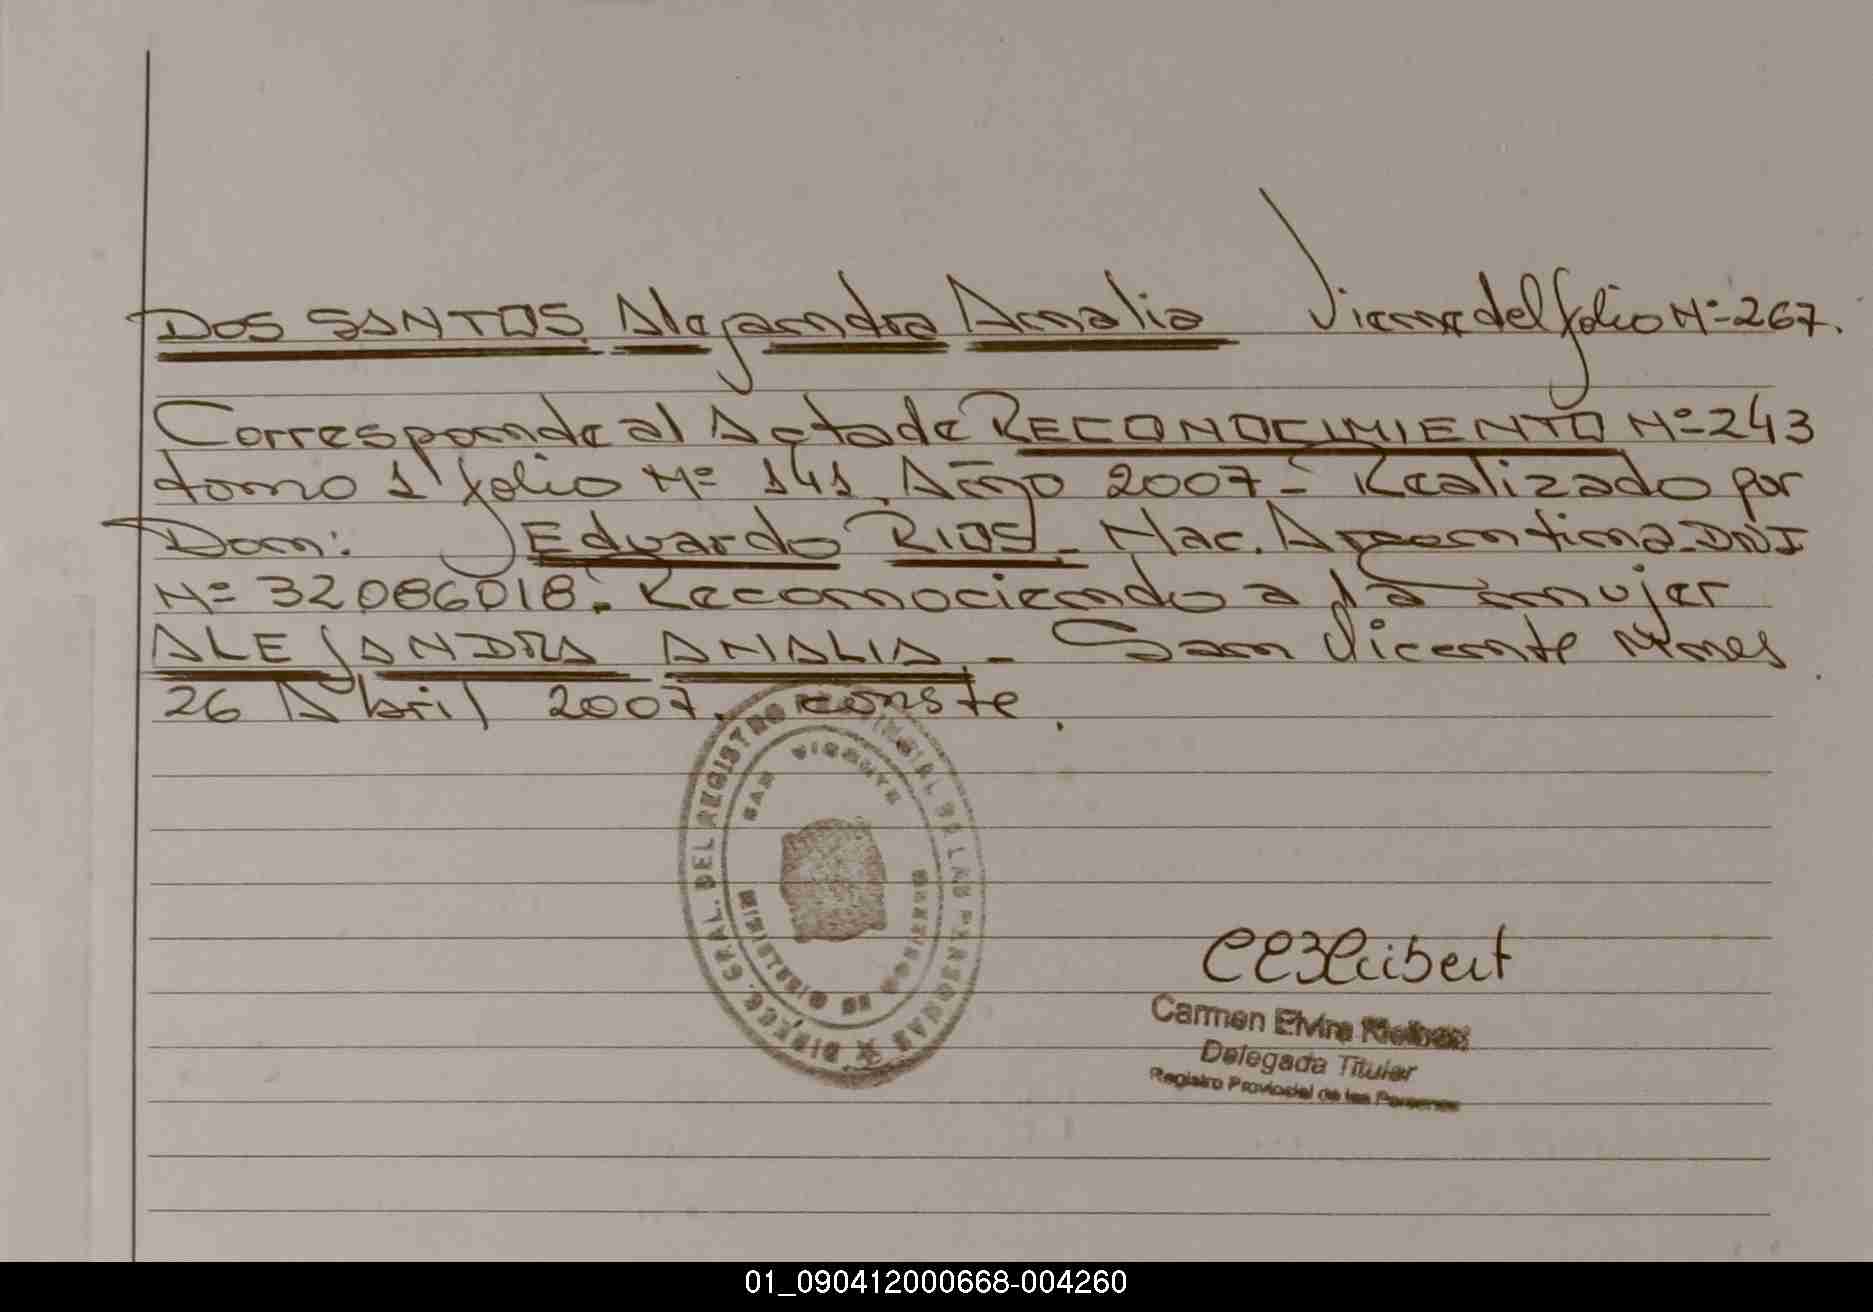 DOS SANTOS Alejandra Amalia Viene del folio Nº 267.
Corresponde al Acta de RECONOCIMIENTO Nº 243
tomo 1º folio Nº 141. Año 2007 - Realizado por
Don: Eduardo RIOS - Nac. Argentina - DNI
Nº 32086018. Reconociendo a la mujer
ALEJANDRA AMALIA. - San Vicente Mnes
26 Abril 2007. conste.
DIREC. GRAL. DEL REGISTRO PROVINCIAL DE LAS PERSONAS
SAN VICENTE
MISIONES
Carmen Elvira
Delegada Titular
Registro Provincial de las Personas
01_090412000668-004260